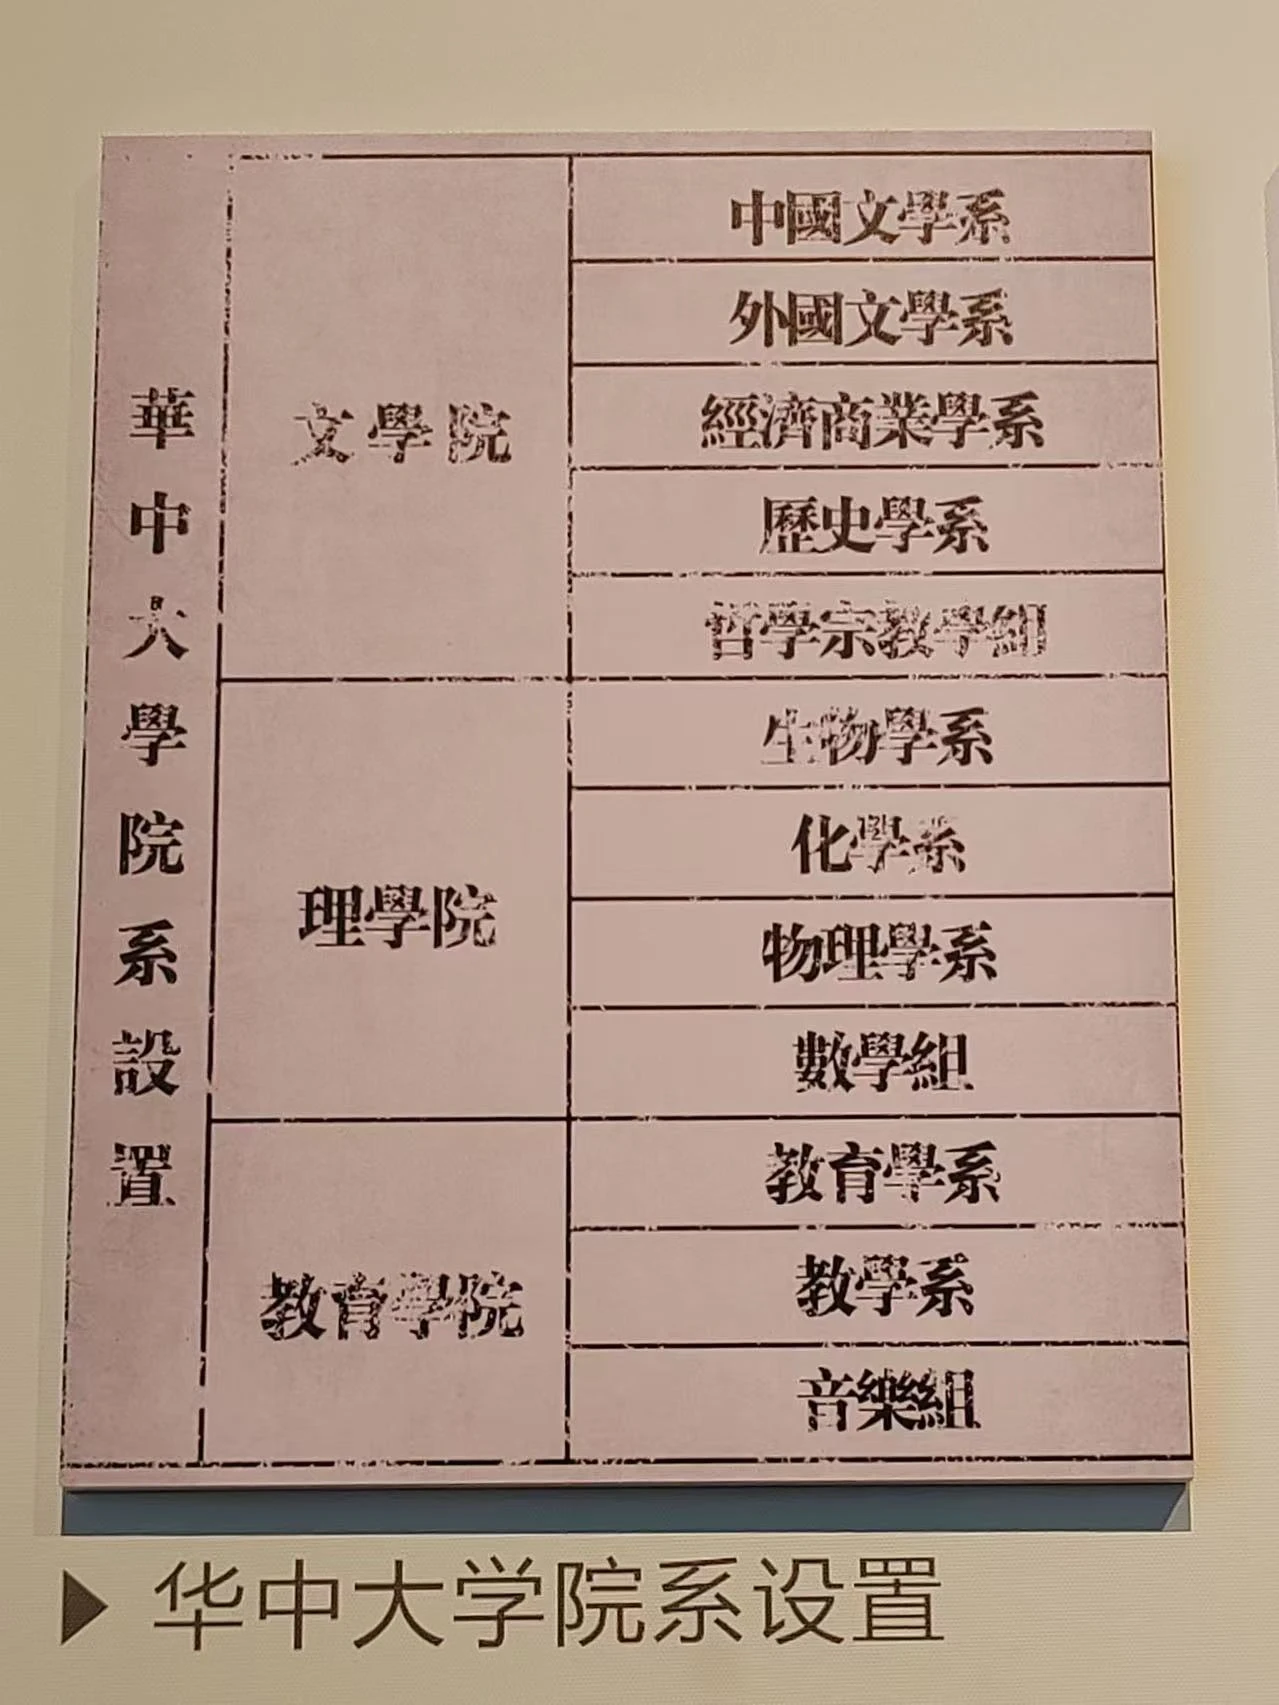 華中大學院系設置
文學院
中國文學系
外國文學系
經濟商業學系
歷史學系
哲學宗教學組
理學院
生物學系
化學系
物理學系
數學組
教育學院
教育學系
教學系
音樂組
华中大学院系设置